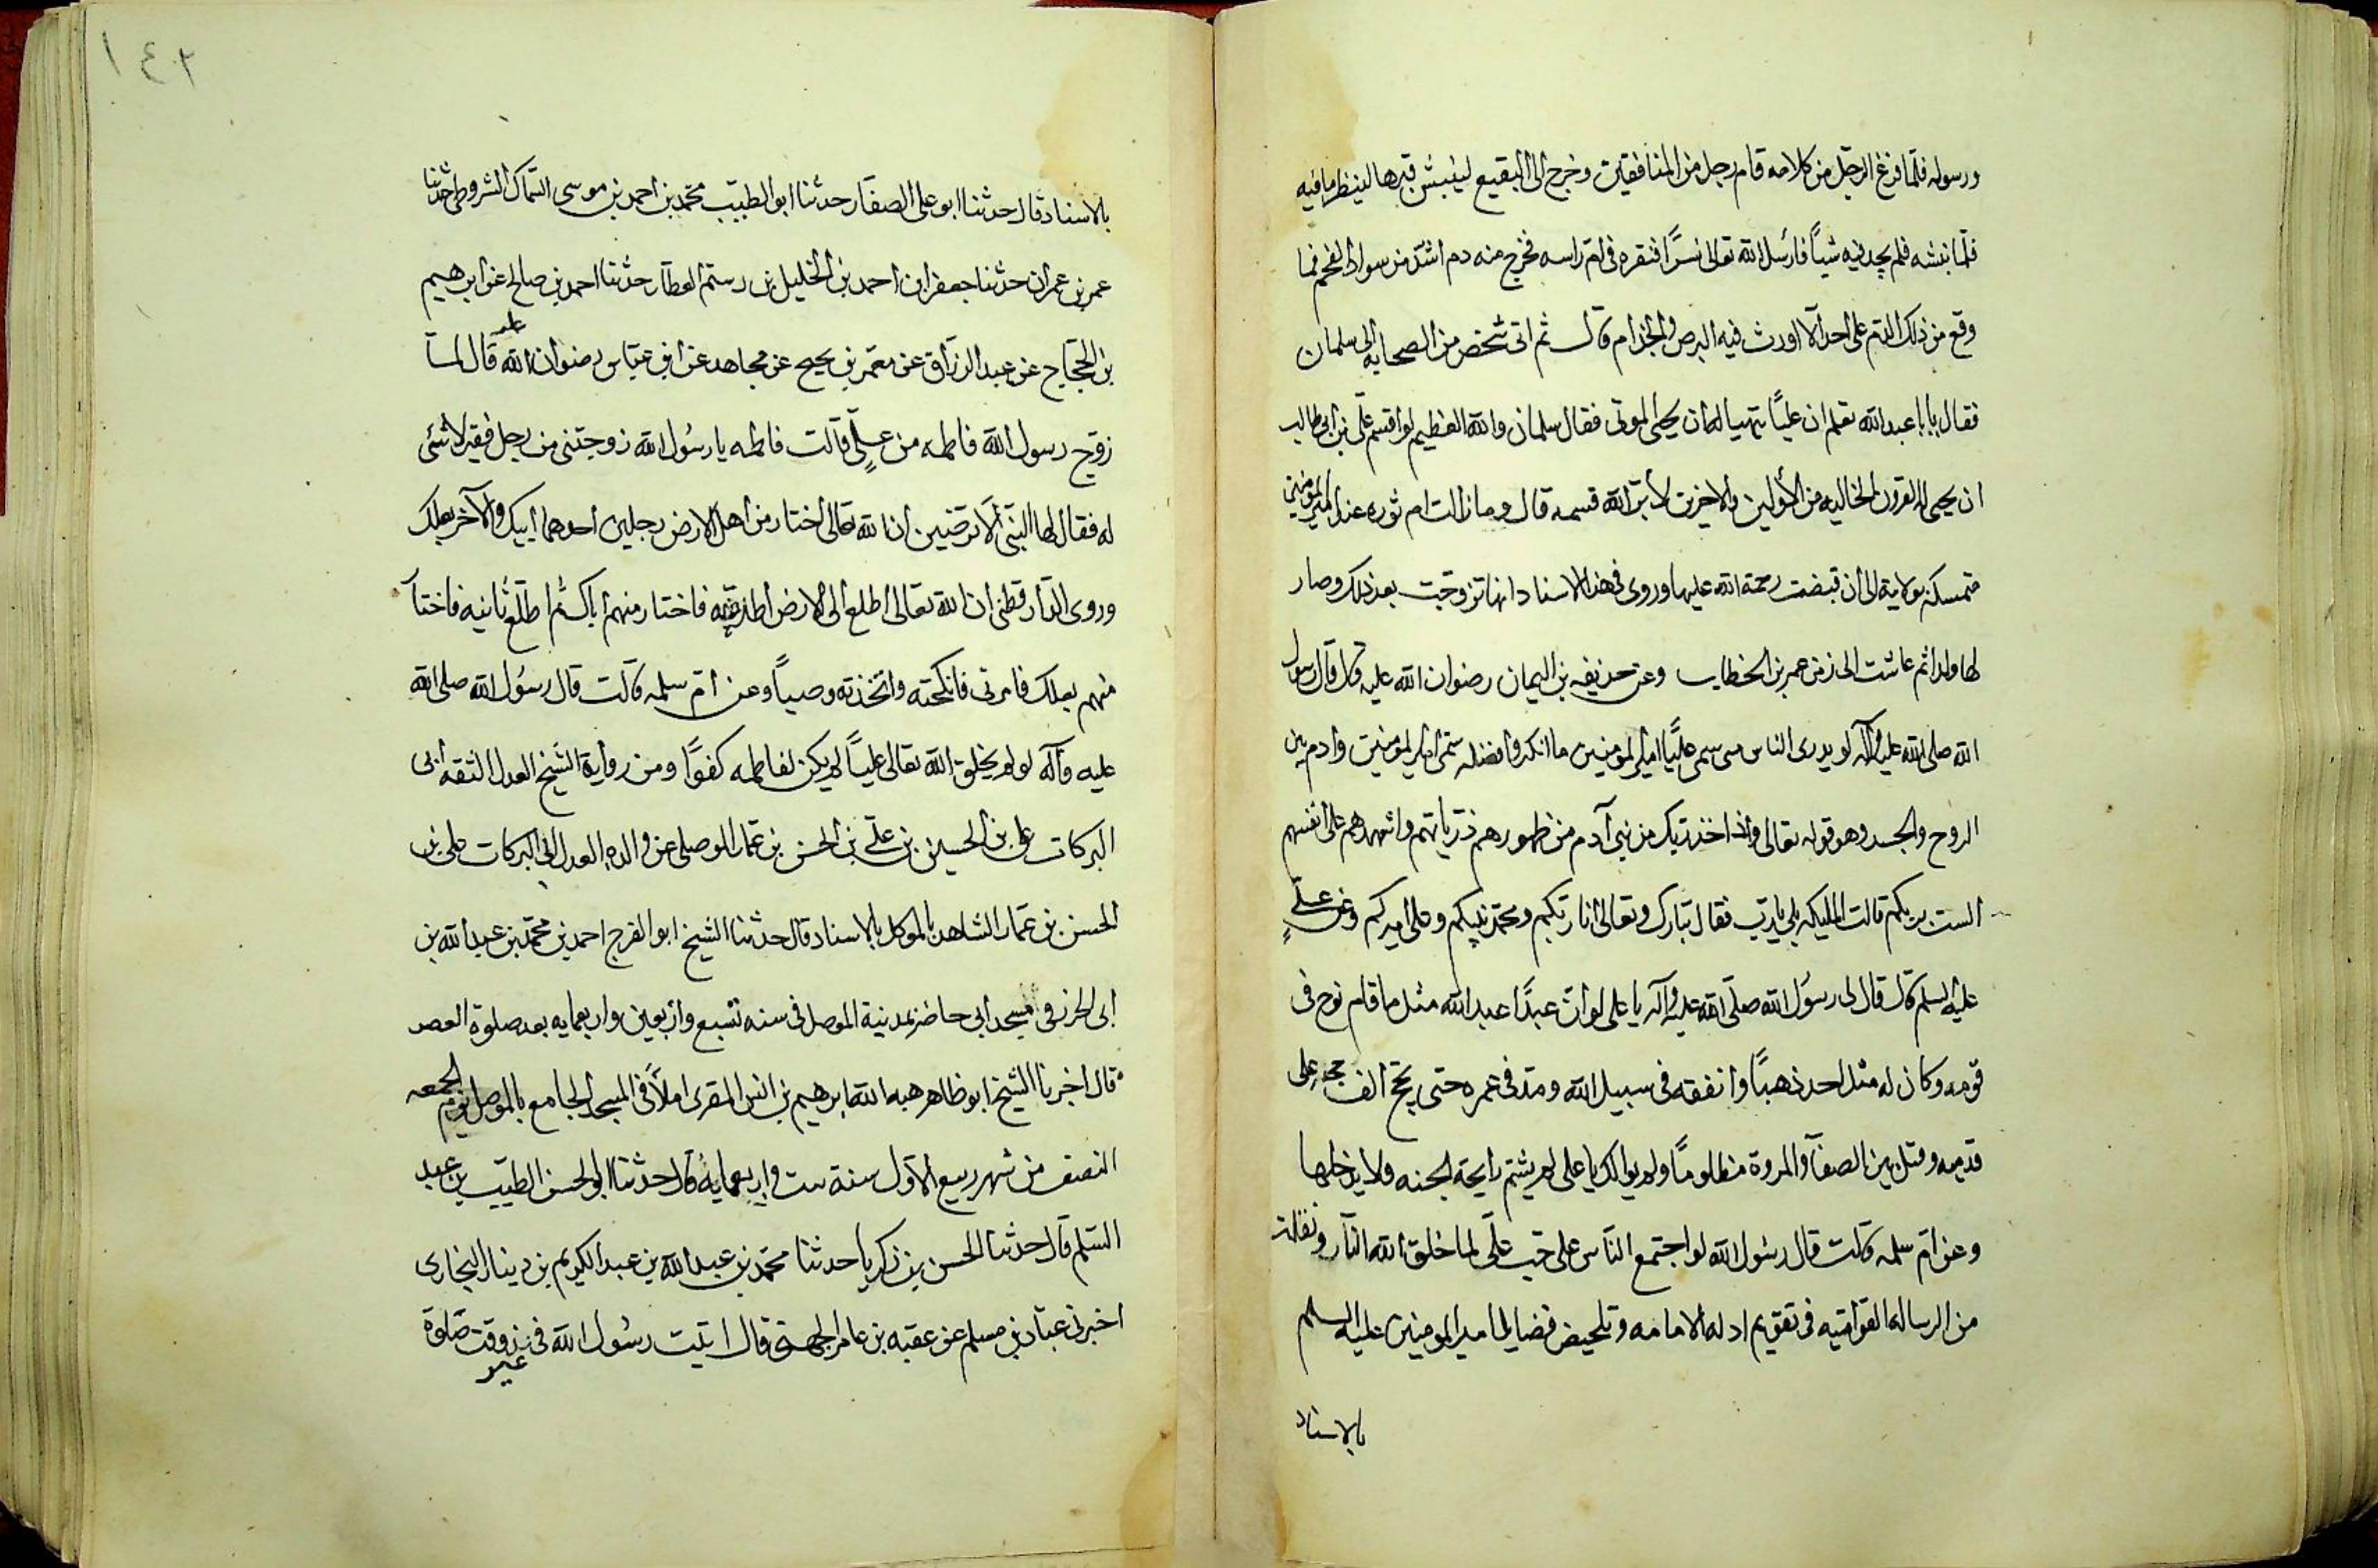 ورسوله فلما فرغ الرجل من كلامه قام رجل من المنافقين وخرج الى البقيع لينبش قبرها لينظر ما فيه
فلما نبشه فلم يجد فيه شياً فارسل الله تعالى نسراً فنقره فى ام راسه فخرج منه دم اشد من سواد الفحم فما
وقع من ذلك الدم على احد الا اورث فيه البرص والجذام قال ثم اتى شخص من الصحابه الى سلمان
فقال يابا عبد الله تعلم ان علياً تهيا له ان يحيى الموتى فقال سلمان والله العظيم لو اقسم على بن ابى طالب
ان يحيى له القرون الخاليه من الأولين والاخرين لأبر الله قسمه قال وما زالت ام ثوره عند امير المومنين
متمسكه بولاية الى ان قبضت رحمة الله عليها وروى فى هذا الاسناد انها تزوجت بعد ذلك وصار
لها ولد ثم عاشت الى زمن عمر بن الخطاب وعن حذيفه بن اليمان رضوان الله عليه قال قال رسول
الله صلى الله عليه وآله لو يدرى الناس متى سمى علياً امير المومنين ما انكروا فضله سمى امير المومنين وادم بين
الروح والجسد وهو قوله تعالى واذ اخذ ربك من بنى آدم من ظهورهم ذرياتهم واشهدهم على انفسهم
الست بربكم قالت المليكه بلى يارب فقال تبارك وتعالى انا ربكم ومحمد نبيكم وعلى اميركم وعن علىٍ
عليه السلم قال قال لى رسول الله صلى الله عليه وآله يا على لو ان عبداً عبد الله مثل ما قام نوح فى
قومه وكان له مثل احد ذهباً وانفقه فى سبيل الله ومد فى عمره حتى يحج الف حجه على
قدميه وقتل بين الصفا والمروة مظلوماً ولم يوالك يا على لم يشتم رايحة الجنه ولا يدخلها
وعن ام سلمه قالت قال رسول الله لو اجتمع الناس على حب على لما خلق الله النار ونقلت
من الرساله القواميه فى تقويم ادله الامامه وتلخيص فضايل امير المومنين عليه السلم
بالاسناد
١٤٢
بالاسناد قال حدثنا ابو على الصفار حدثنا ابو الطيب محمد بن احمد بن موسى السماك الشروطى حدثنا
عمر بن عمران حدثنا جعفر ابن احمد بن الخليل بن رستم العطار حدثنا احمد بن صالح عن ابرهيم
بن الحجاج عن عبد الرزاق عن معمر بن يحيح عن مجاهد عن ابن عباس رضوان الله عليه قال لما
زوج رسول الله فاطمه من علىٍ قالت فاطمه يا رسول الله زوجتنى من رجل فقير لا شئى
له فقال لها النبى ألا ترضين ان الله تعالى اختار من اهل الارض رجلين احدهما ابيك والآخر بعلك
وروى الدارقطنى ان الله تعالى اطلع الى الارض فاختار منهم اباك ثم اطلع ثانيه فاختا
منهم بعلك فامرنى فانكحته واتخذته وصياً وعن ام سلمه قالت قال رسول الله صلى الله
عليه وآله لو لم يخلق الله تعالى علياً لم يكن لفاطمه كفوًا ومن رواية الشيخ العدل الثقه أبى
البركات على بن الحسين بن على بن الحسن بن عمار الموصلى عن والده العدل ابى البركات على بن
الحسن بن عمار الشاهد بالموكل بالاسناد قال حدثنا الشيخ ابو الفرج احمد بن محمد بن عبد الله بن
ابى الخرز فى المسجد ابى حاضر بمدينة الموصل فى سنه تسع واربعين واربعمايه بعد صلوة العصر
قال اخبرنا الشيخ ابو ظاهر هبه الله ابرهيم بن انس المقرى املأً فى المسجد الجامع بالموصل يوم الجمعه
النصف من شهر ربيع الاول سنة ست واربعمايه قال حدثنا ابو الحسن الطيب بن عبد
السلم قال حدثنا الحسن بن زكريا حدثنا محمد بن عبد الله بن عبد الكريم بن دينار البخارى
اخبرنى عباد بن مسلم عن عقبه بن عامر الجهنى قال اتيت رسول الله فى غير وقت صلوة